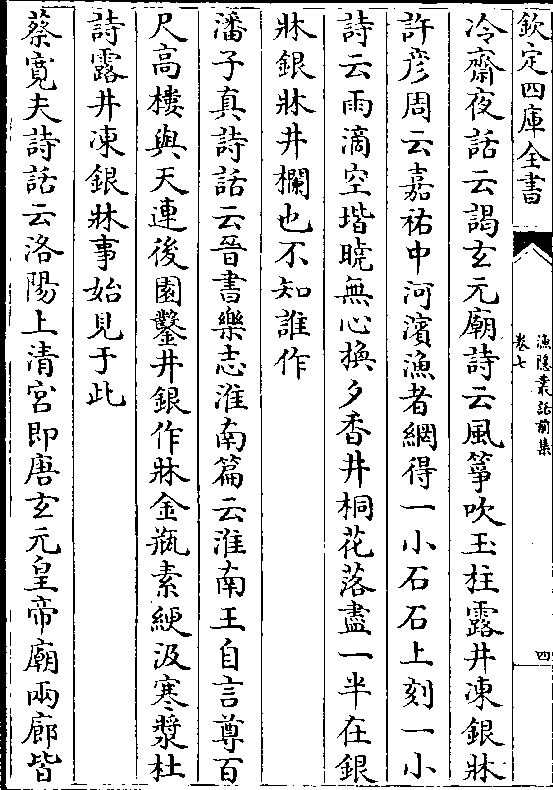 欽定四庫全書
漁隱叢話前集
卷七
四
冷齋夜話云謁玄元廟詩云風筝吹玉柱露井凍銀牀
許彦周云嘉祐中河濵漁者網得一小石石上刻一小
詩云雨滴空堦曉無心換夕香井桐花落盡一半在銀
牀銀牀井欄也不知誰作
潘子真詩話云晉書樂志淮南篇云淮南王自言尊百
尺高樓與天連後園鑿井銀作牀金瓶素綆汲寒漿杜
詩露井凍銀牀事始見于此
蔡寛夫詩話云洛陽上清宮即唐玄元皇帝廟兩廊皆